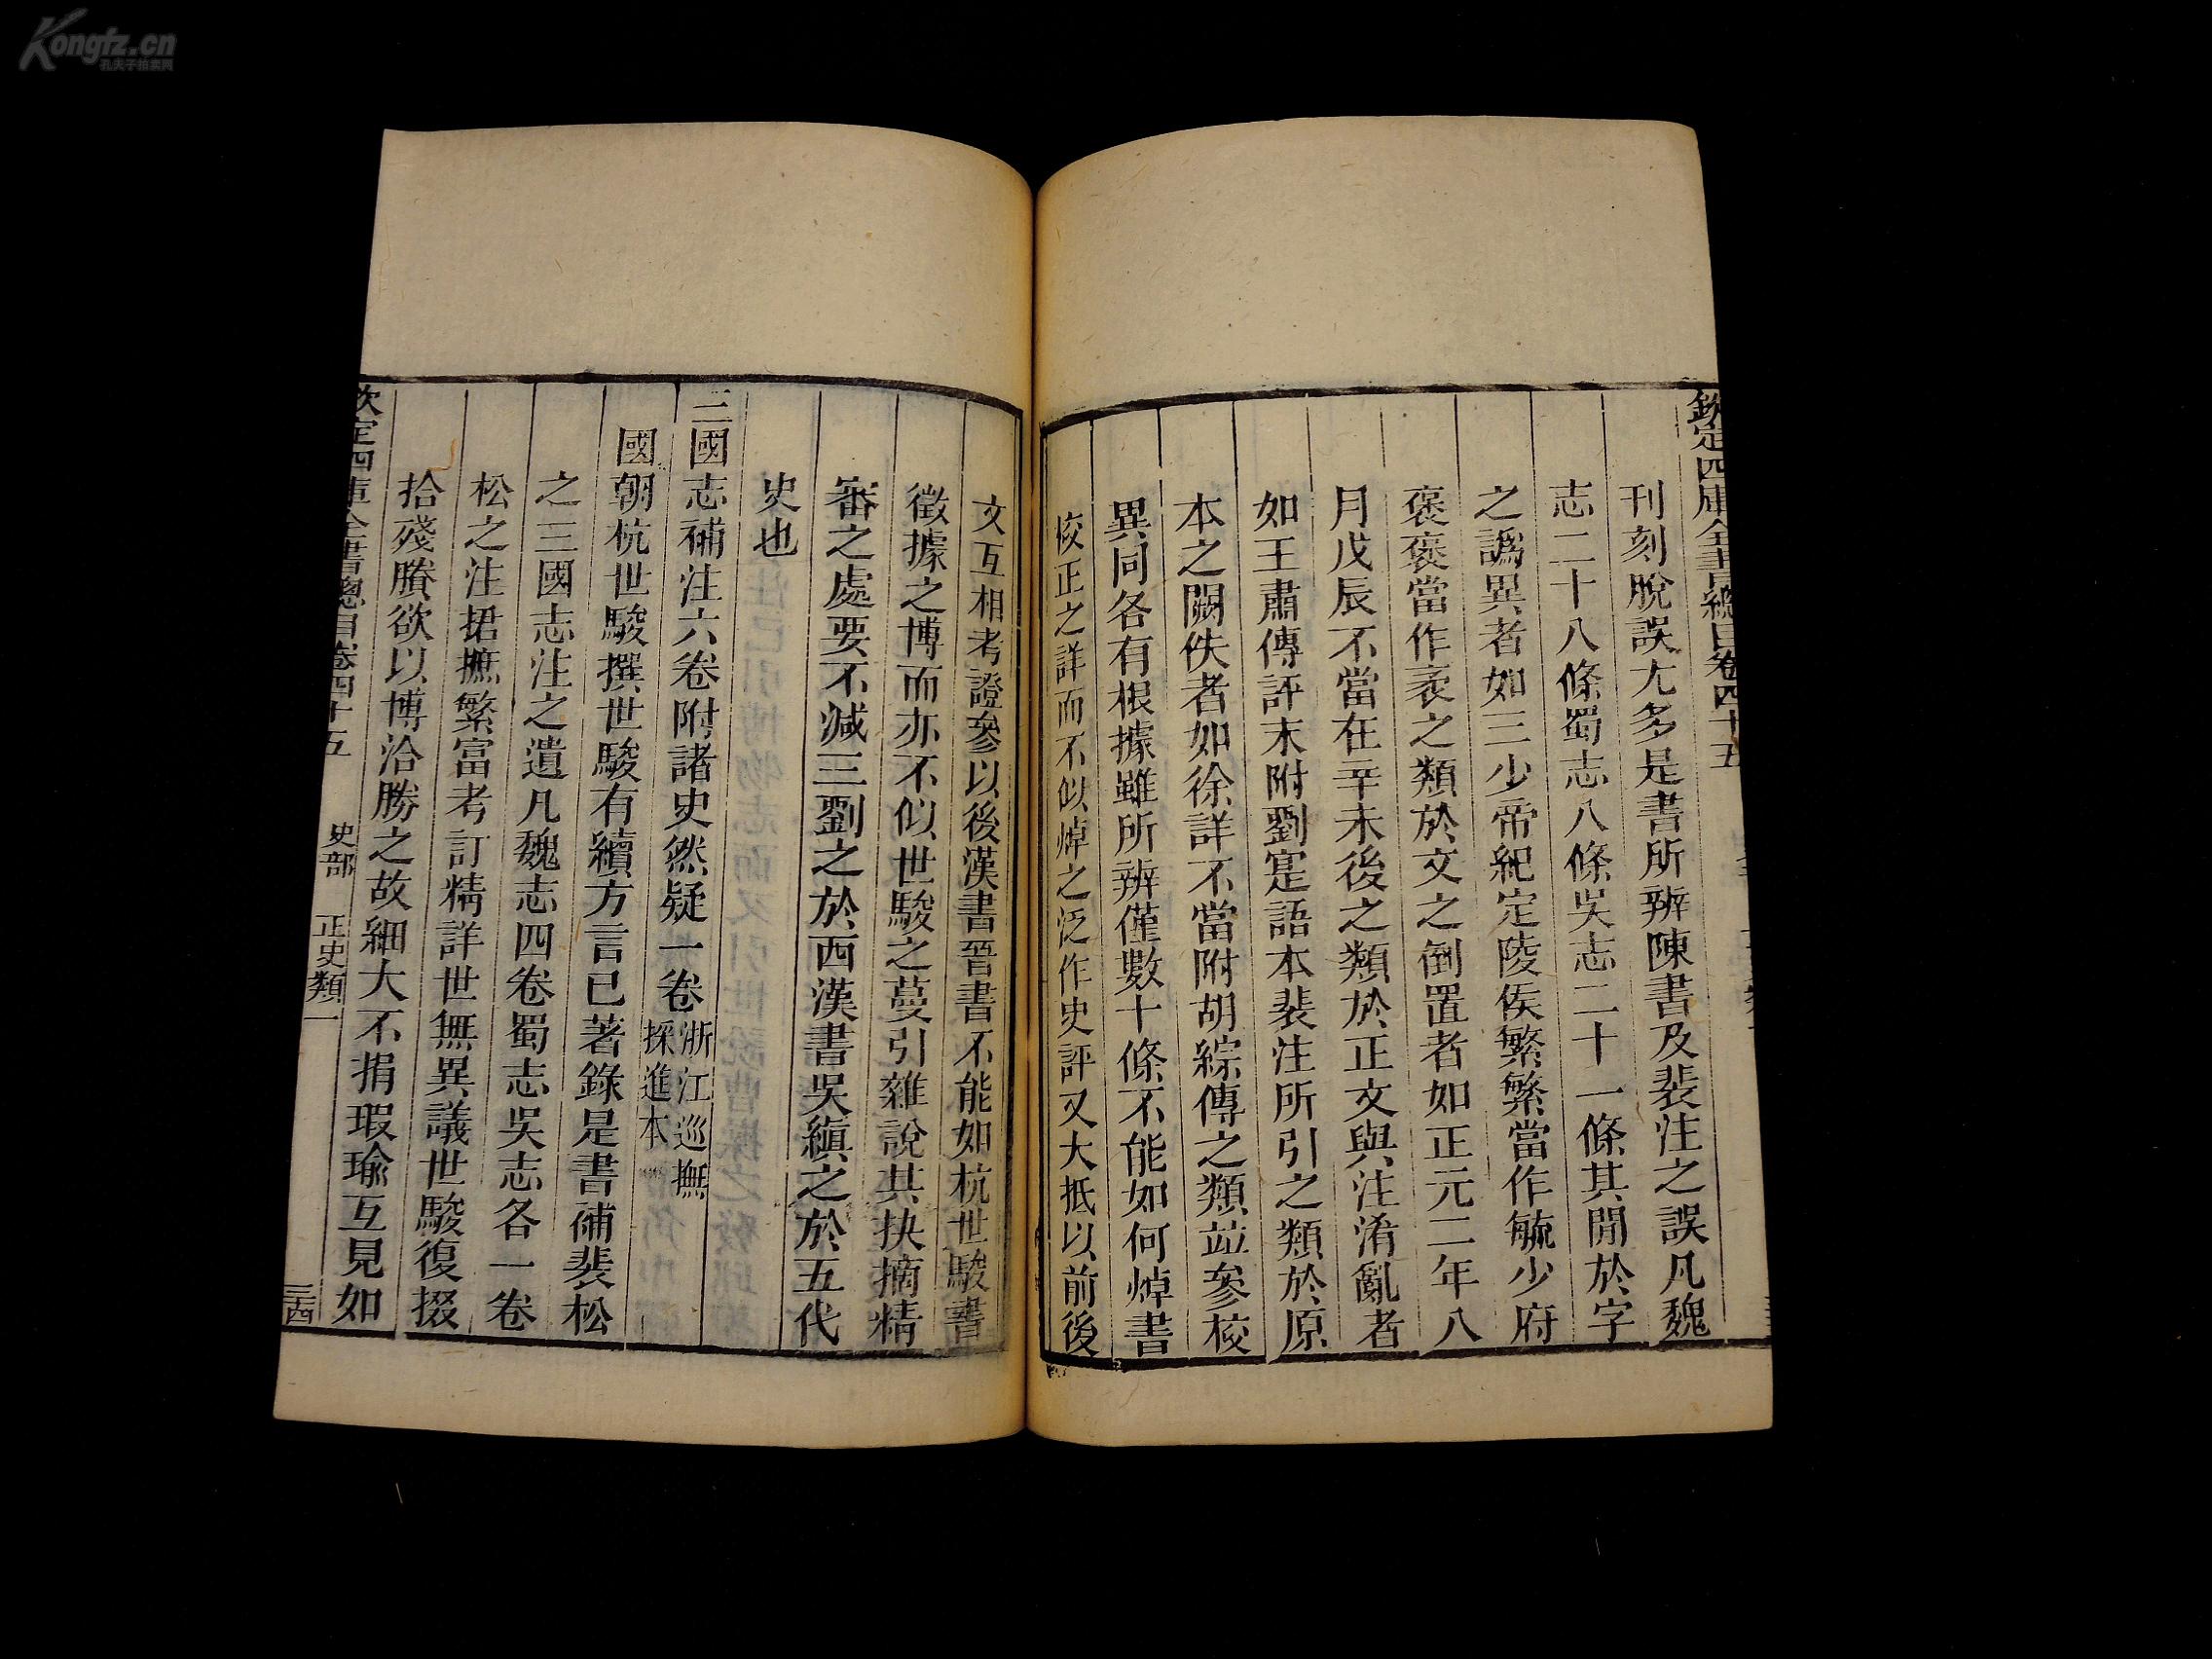 Kongfz.cn
孔夫子拍卖网
欽定四庫全書總目卷四十五
刊刻脫誤尤多是書所辨陳書及裴注之誤凡魏
志二十八條蜀志八條吳志二十一條其間於字
之譌異者如三少帝紀定陵侯繁繁當作毓少府
褒褒當作袤之類於文之倒置者如正元二年八
月戊辰不當在辛未後之類於正文與注淆亂者
如王肅傳評末附劉寔語本裴注所引之類於原
本之闕佚者如徐詳不當附胡綜傳之類並參校
異同各有根據雖所辨僅數十條不能如何焯書
校正之詳而不似焯之泛作史評又大抵以前後
文互相考證參以後漢書晉書不能如杭世駿書
徵據之博而亦不似世駿之蔓引雜說其抉摘精
審之處要不減三劉之於西漢書吳縝之於五代
史也
三國志補注六卷附諸史然疑一卷浙江巡撫
採進本
國朝杭世駿撰世駿有續方言已著錄是書補裴松
之三國志注之遺凡魏志四卷蜀志吳志各一卷
松之注捃摭繁富考訂精詳世無異議世駿復掇
拾殘賸欲以博洽勝之故細大不捐瑕瑜互見如
欽定四庫全書總目卷四十五 史部 正史類一